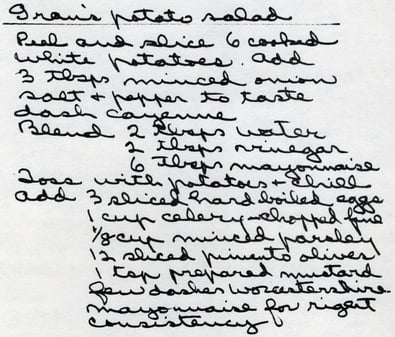 Gran's potato salad
Peel and slice 6 cooked
white potatoes. Add
3 tbsps minced onion
salt + pepper to taste
dash cayenne
Blend 2 tbsps water
2 tbsps vinegar
6 tbsps mayonnaise
Toss with potatoes + chill
add 3 sliced hard boiled eggs
1 cup celery - chopped fine
1/8 cup minced parsley
12 sliced pimento olives
1 tsp prepared mustard
few dashes worcestershire
mayonnaise for right
consistency